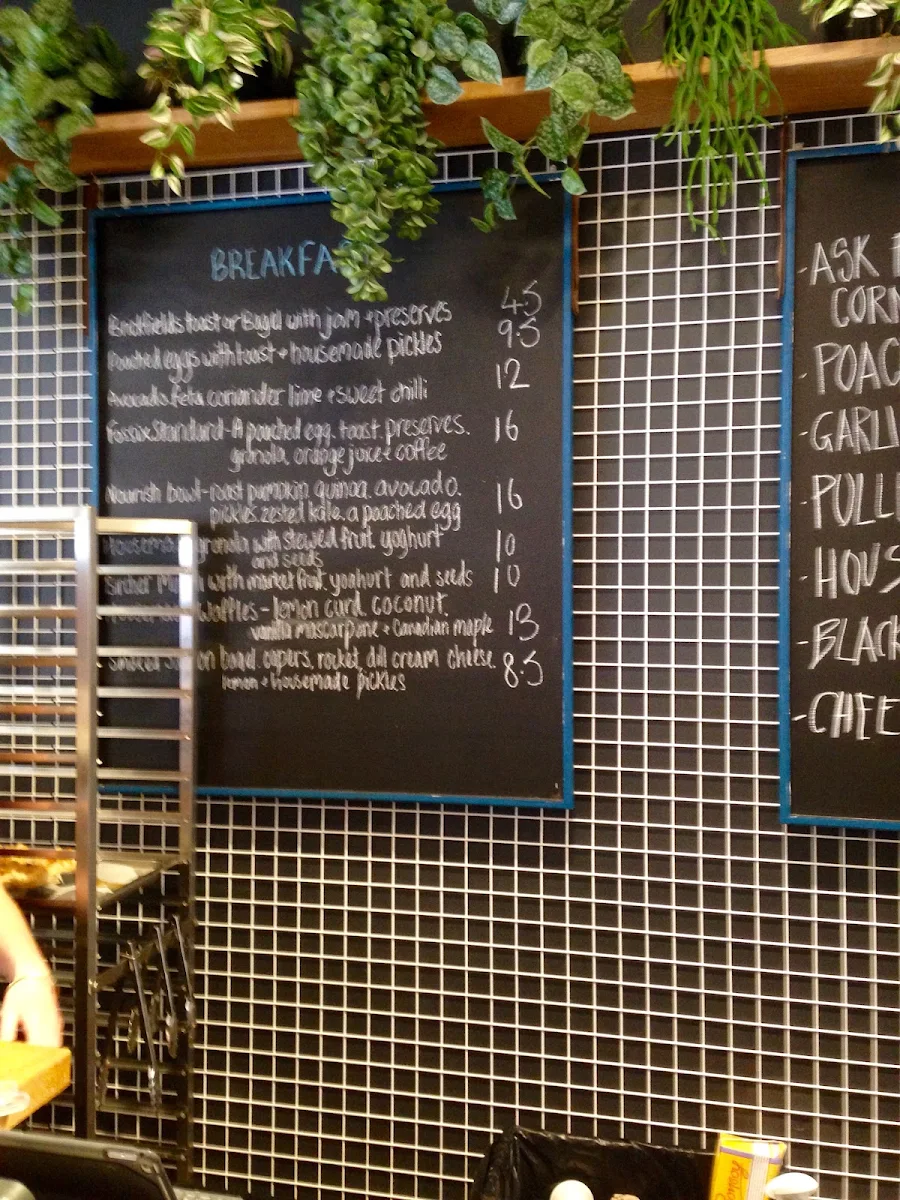 BREAKFA
toast or Bagel with jam + preserves 4.5
Poached eggs with toast + housemade pickles 9.5
Avocado. feta. coriander lime + sweet chilli 12
Standard - A poached egg. toast. preserves. 16
granola. orange juice + coffee
Nourish bowl - roast pumpkin. quinoa. avocado. 16
pickles. zested kale. a poached egg
granola with stewed fruit. yoghurt 10
and seeds
with market fruit. yoghurt and seeds 10
Waffles - lemon curd. coconut. 13
vanilla mascarpone + Canadian maple
on bagel. capers, rocket, dill cream cheese. 8.5
lemon + housemade pickles
- ASK
CORN
- POAC
- GARLI
- PULL
- HOUS
- BLACK
- CHEE